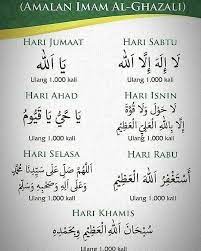 (AMALAN IMAM AL-GHAZALI)
HARI JUMAAT
يَا اَللّٰه
Ulang 1,000 kali
HARI SABTU
لَا إِلَهَ إِلَّا اللّٰه
Ulang 1,000 kali
HARI AHAD
يَا حَيُّ يَا قَيُّومُ
Ulang 1,000 kali
HARI ISNIN
لَا حَوْلَ وَلَا قُوَّةَ
إِلَّا بِاللّٰهِ الْعَلِيِّ الْعَظِيْمِ
Ulang 1,000 kali
HARI SELASA
اَللّٰهُمَّ صَلِّ عَلَى سَيِّدِنَا مُحَمَّدٍ
وَعَلَى آلِهِ وَصَحْبِهِ وَسَلِّمْ
Ulang 1,000 kali
HARI RABU
أَسْتَغْفِرُ اللّٰهَ الْعَظِيْمَ
Ulang 1,000 kali
HARI KHAMIS
سُبْحَانَ اللّٰهِ الْعَظِيْمِ وَبِحَمْدِهِ
Ulang 1,000 kali